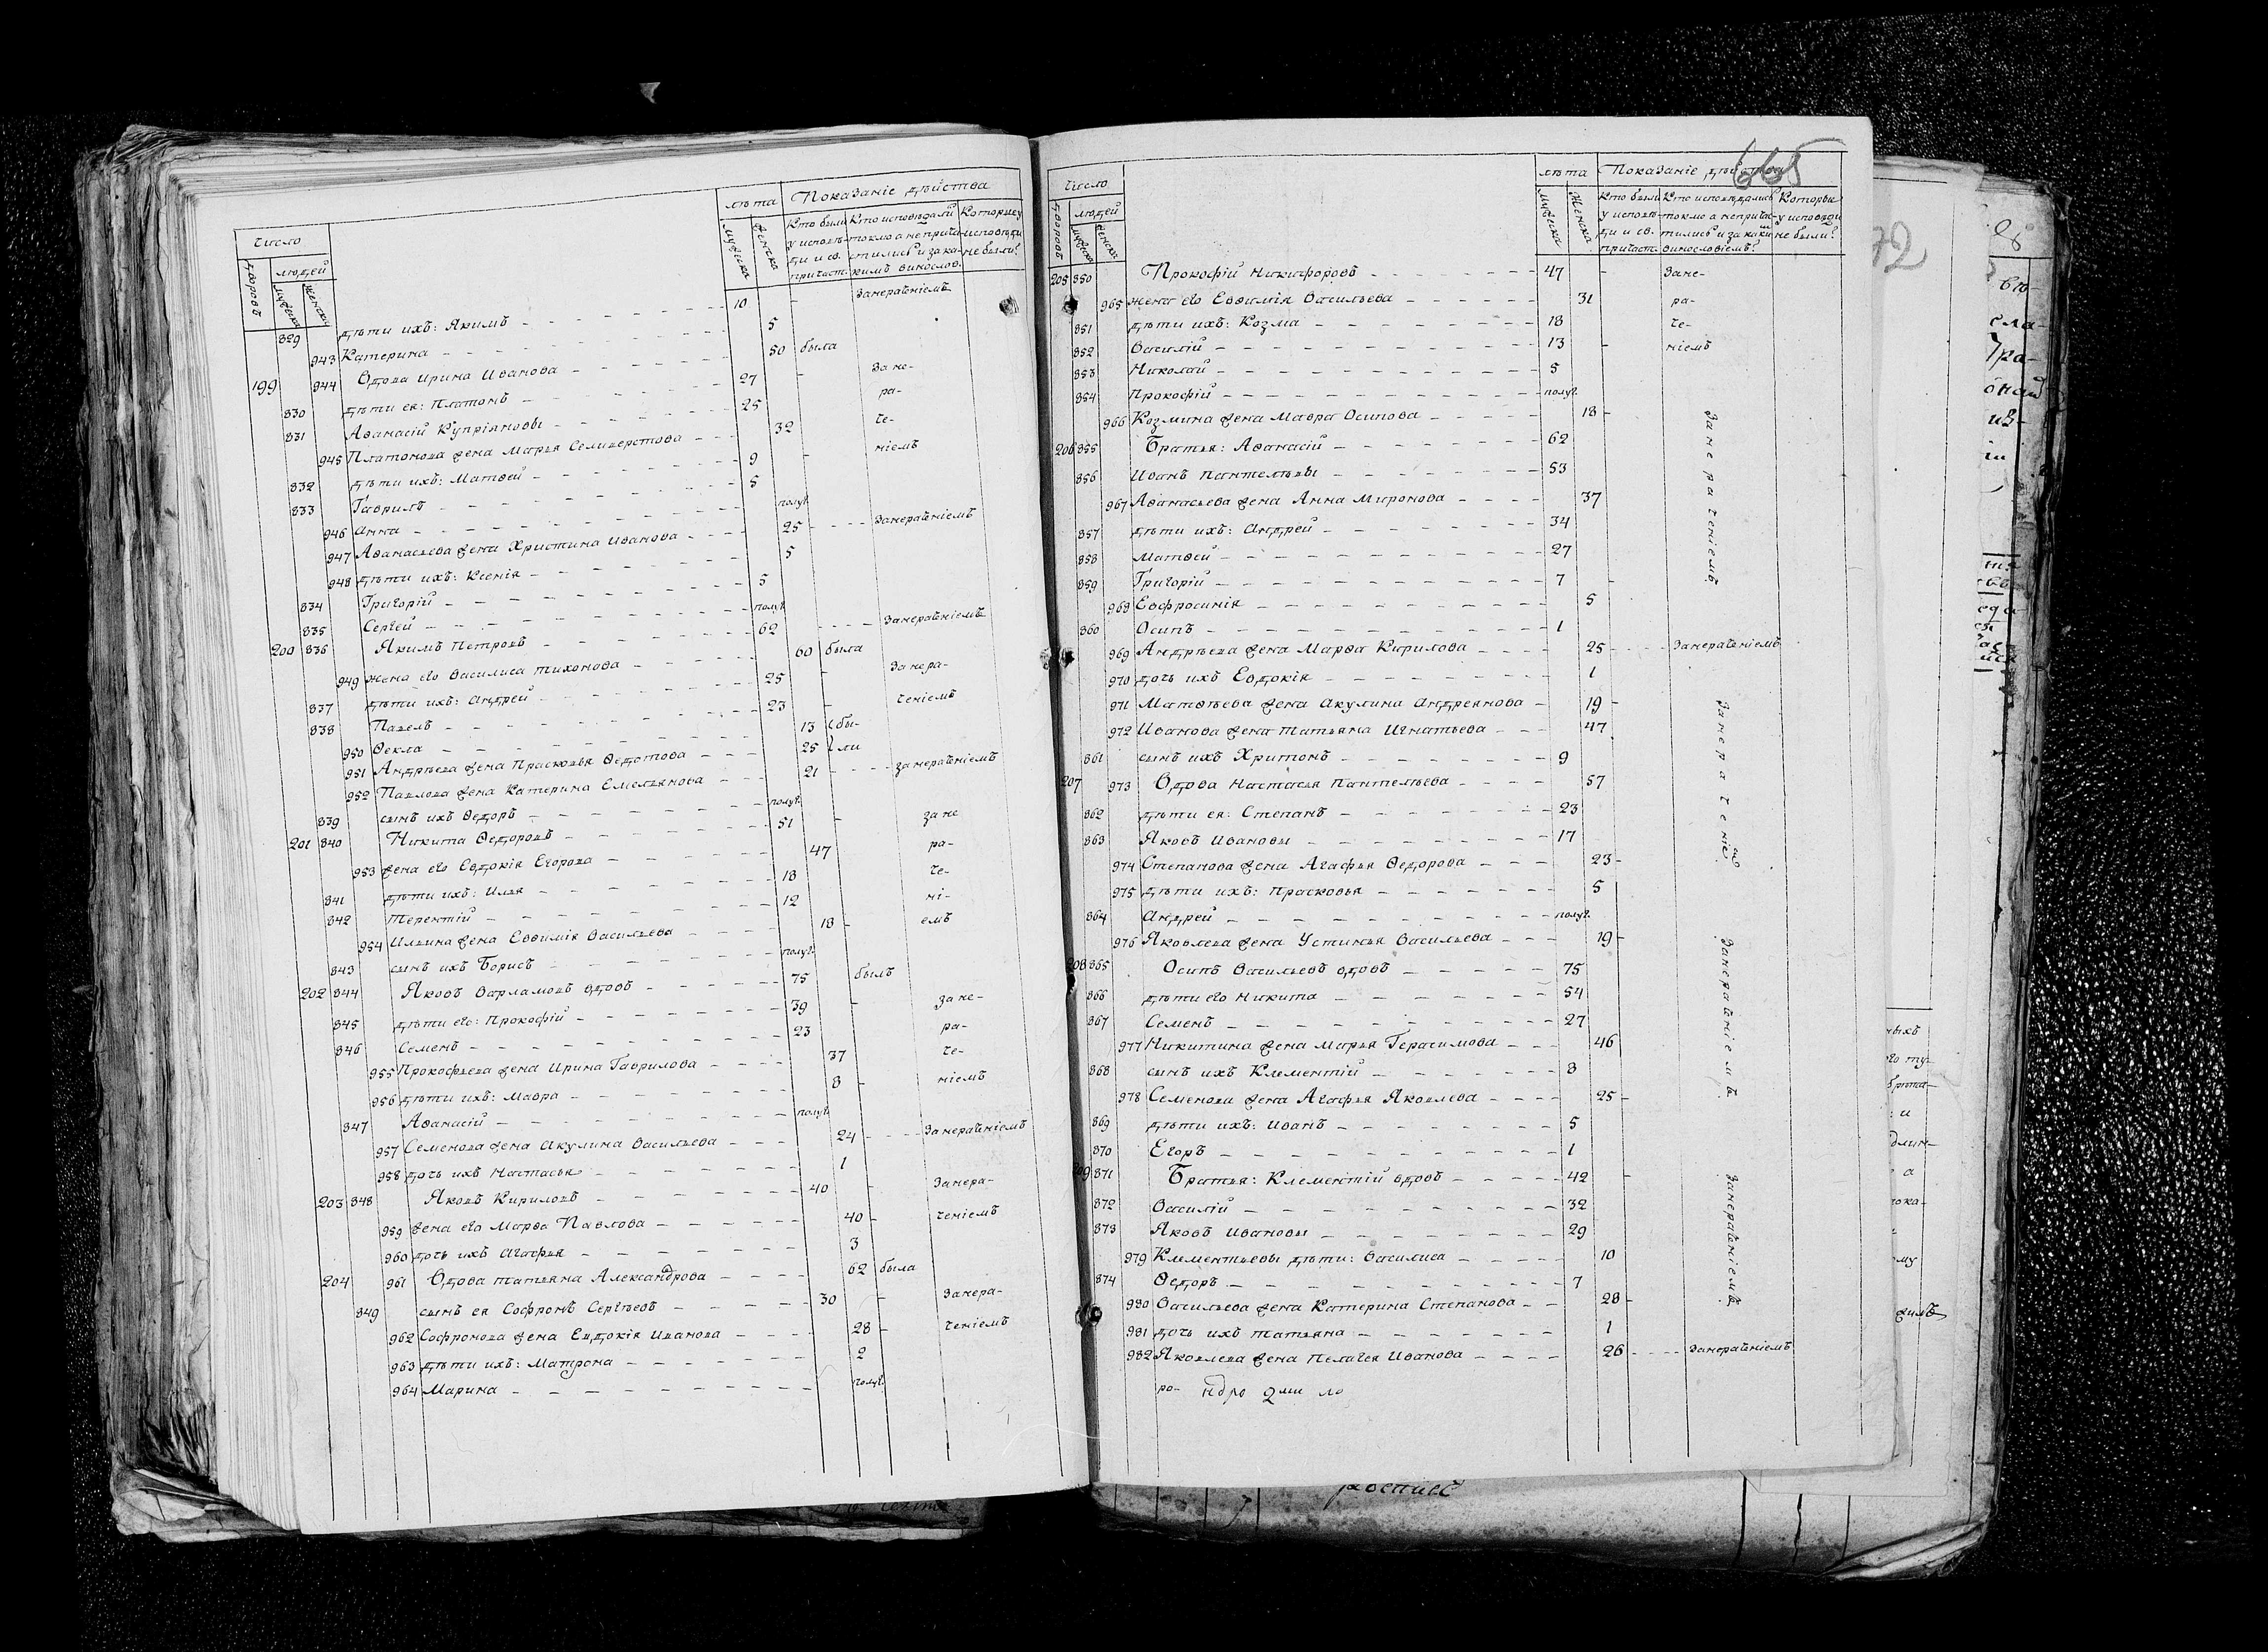 Число
лѣта Показаніе дѣйства
дворовъ людей мужеска женска
мужеска женска Кто были у исповѣди и св. причаст. Кто исповѣдали токмо а не причастились и за какимъ винослов. Которые у исповѣди не были?
829 дѣти ихъ: Якимъ 10 - Занераченіемъ
943 Катерина 5
199 944 Вдова Ирина Иванова 50 была
830 дѣти ея: Платонъ 27 - За не-
831 Аѳанасій Купріяновы 25 ра-
945 Платонова жена Марья Селиверстова 32 че-
832 дѣти ихъ: Матвей 9 - ніемъ
833 Гаврилъ 5
946 Анна полуг.
947 Аѳанасьева жена Христина Иванова 25 Занераченіемъ
948 дѣти ихъ: Ксенія 5
834 Григорій 5
835 Сергей полуг.
200 836 Якимъ Петровъ 62 Занераченіемъ
949 жена его Василиса Тихонова 60 была
837 дѣти ихъ: Андрей 25 - Занера-
838 Павелъ 23 - ченіемъ
950 Ѳекла 13 бы-
951 Андрѣева жена Прасковья Ѳедотова 25 ли
952 Павлова жена Катерина Емельянова 21 занераченіемъ
839 сынъ ихъ Ѳедоръ полуг.
201 840 Никита Ѳедоровъ 51 - за не
953 жена его Евдокія Егорова 47 ра-
841 дѣти ихъ: Илья 18 че-
842 Терентій 12 ні-
954 Ильина жена Евѳимія Васильева 18 - емъ
843 сынъ ихъ Борисъ полуг.
202 844 Яковъ Варламовъ вдовъ 75 былъ
845 дѣти его: Прокофій 39 - за не-
846 Семенъ 23 ра-
955 Прокофьева жена Ирина Гаврилова 37 че-
956 дѣти ихъ: Мавра 8 - ніемъ
847 Аѳанасій полуг.
957 Семенова жена Акулина Васильева 24 Занераченіемъ
958 дочь ихъ Настасья 1
203 848 Яковъ Кириловъ 40 - Занера-
959 жена его Марѳа Павлова 40 - ченіемъ
960 дочь ихъ Агафья 3
204 961 Вдова Татьяна Александрова 62 была
849 сынъ ея Софронъ Сергѣевъ 30 - Занера-
962 Софронова жена Евдокія Иванова 28 - ченіемъ
963 дѣти ихъ: Матрона 2
964 Марина полуг.
665
Число
лѣта Показаніе дѣйства
дворовъ людей мужеска женска
мужеска женска Кто были у исповѣди и св. причаст. Кто исповѣдались токмо а не причастились и за какимъ винословіемъ? Которые у исповѣди не были?
205 850 Прокофій Никифоровъ 47 - Зане-
965 жена его Евфимія Васильева 31 ра-
851 дѣти ихъ: Козма 18 че-
852 Василій 13 - ніемъ
853 Николай 5
854 Прокофій полуг.
966 Козмина жена Мавра Осипова 18 -
206 855 Братья: Аѳанасій 62
856 Иванъ Пантелѣевы 53
967 Аѳанасьева жена Анна Миронова 37
Занераченіемъ
857 дѣти ихъ: Андрей 34
858 Матвей 27
859 Григорій 7 -
968 Евфросинія 5
860 Осипъ 1
969 Андрѣева жена Марѳа Кирилова 25 Занераченіемъ
970 дочь ихъ Евдокія 1
971 Матвѣева жена Акулина Андреянова 19 -
972 Иванова жена Татьяна Игнатьева 47
861 сынъ ихъ Хритонъ 9
Занераченіе
207 973 Вдова Настасья Пантелѣева 57
862 дѣти ея: Степанъ 23
863 Яковъ Ивановы 17
974 Степанова жена Агафья Ѳедорова 23 -
975 дѣти ихъ: Прасковья 5
864 Андрей полуг.
976 Яковлева жена Устинья Васильева 19 -
208 865 Осипъ Васильевъ вдовъ 75
866 дѣти его Никита 54
867 Семенъ 27
977 Никитина жена Марья Герасимова 46
Занераченіемъ
868 сынъ ихъ Клементій 8
978 Семенова жена Агафья Яковлева 25 -
869 дѣти ихъ: Иванъ 5
870 Егоръ 1
209 871 Братья: Клементій вдовъ 42 -
872 Василій 32
873 Яковъ Ивановы 29
979 Клементьевы дѣти: Василиса 10
Занераченіемъ
874 Ѳедоръ 7
980 Васильева жена Катерина Степанова 28 -
981 дочь ихъ Татьяна 1
982 Яковлева жена Пелагея Иванова 26 Занераченіемъ
72